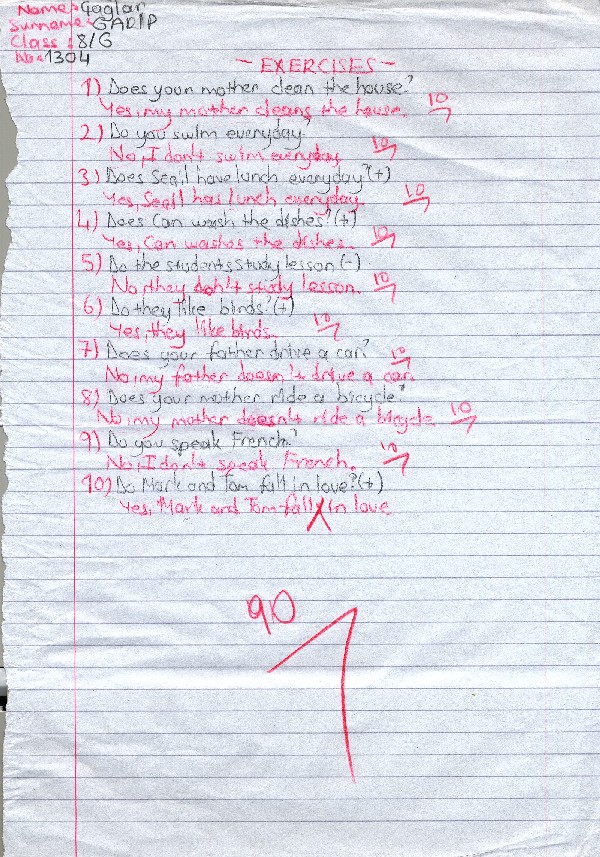 Name: Çağlar
Surname: GARİP
Class: 8/G
No: 1304
- EXERCISES -
1) Does your mother clean the house?
Yes, my mother cleans the house. 10
2) Do you swim everyday?
No, I don't swim everyday 10
3) Does Seçil have lunch everyday? (+)
Yes, Seçil has lunch everyday. 10
4) Does Can wash the dishes? (+)
Yes, Can washes the dishes. 10
5) Do the students study lesson (-)
No they don't study lesson. 10
6) Do they like birds? (+)
Yes, they like birds. 10
7) Does your father drive a car? 10
No, my father doesn't drive a car.
8) Does your mother ride a bicycle?
No, my mother doesn't ride a bicycle 10
9) Do you speak French?
No, I don't speak French. 10
10) Do Mark and Tom fall in love? (+)
Yes, Mark and Tom falls in love
90